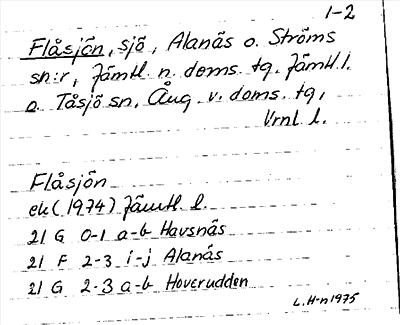 1-2
Flåsjön, sjö, Alanäs o. Ströms
sn:r, Jämtl. n. doms. tg, Jämtl. l.
o. Tåsjö sn, Ång. v. doms. tg,
Vrnl l.
Flåsjön
ek (1974) Jämtl. l.
21 G 0-1 a-b Havsnäs
21 F 2-3 i-j Alanäs
21 G 2-3 a-b Hoverudden
L. H-n 1975